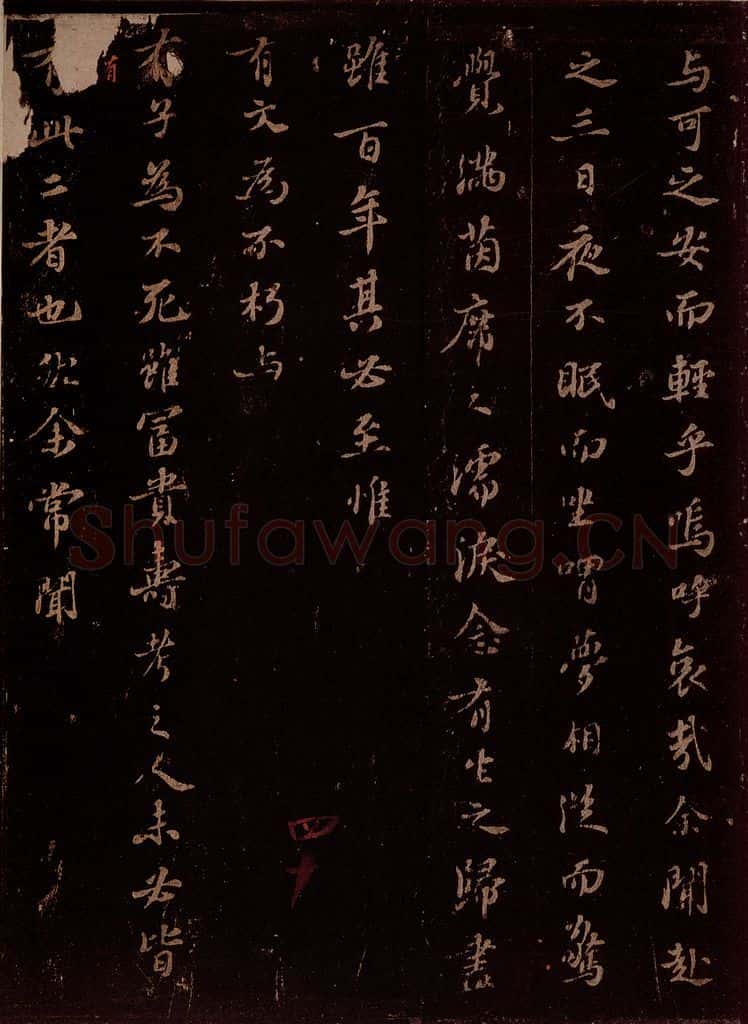 与可之安而輕乎嗚呼哀哉余聞赴
之三日夜不眠而坐喟夢相從而驚
覺滿茵席之濡淚念有生之歸盡
雖百年其必至惟
有文為不朽与
有子為不死雖富貴壽考之人未必皆
有此二者也然余常聞
有
四十
Shufawang.CN